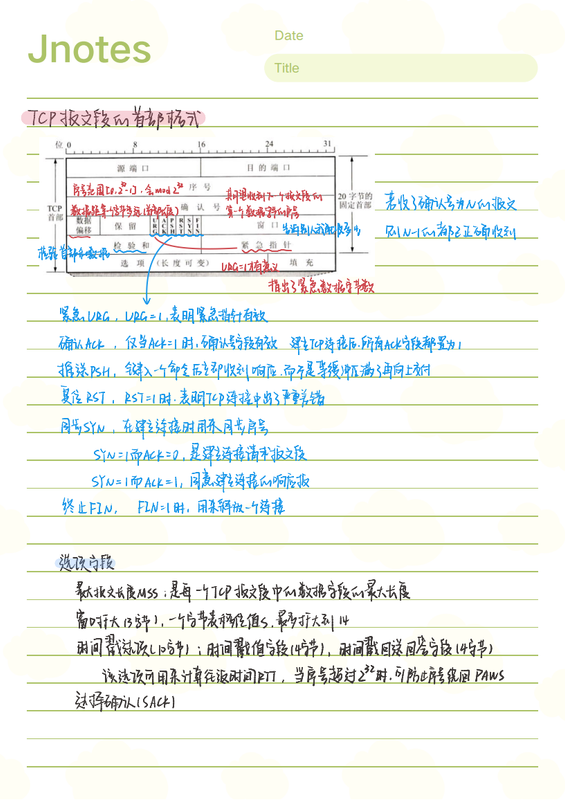 Jnotes
Date
Title
TCP报文段的首部格式
位 0 8 16 24 31
源端口 目的端口
序号范围[0,2³²-1],会mod 2³² 序号 期望收到下一个报文段的
数据距离 确认号 第一个数据字节的序号
TCP首部
数据偏移 保留 URG ACK PSH RST SYN FIN 窗口
20字节的固定首部
若收了确认号为N的报文
则N-1的都已正确收到
检验首部和数据 检验和 紧急指针
选项(长度可变) URG=1才有意义 填充
指出了紧急数据字节数
紧急URG,URG=1,表明紧急指针有效
确认ACK,仅当ACK=1时,确认号字段有效 建立TCP连接后,所有ACK字段都置为1
推送PSH,键入一个命令后立即收到响应,而不是等缓冲区满了再向上交付
复位RST,RST=1时,表明TCP连接中出了严重差错
同步SYN,在建立连接时用来同步序号
SYN=1而ACK=0,是建立连接请求报文段
SYN=1而ACK=1,同意建立连接的响应报
终止FIN,FIN=1时,用来释放一个连接
选项字段
最大报文长度MSS:是每一个TCP报文段中的数据字段的最大长度
窗口扩大(3字节),一个字节表移位值S,最多扩大到14
时间戳选项(10字节):时间戳值字段(4字节),时间戳回送回答字段(4字节)
该选项可用来计算往返时间RTT,当序号超过2³²时,可防止序号绕回PAWS
选择确认(SACK)